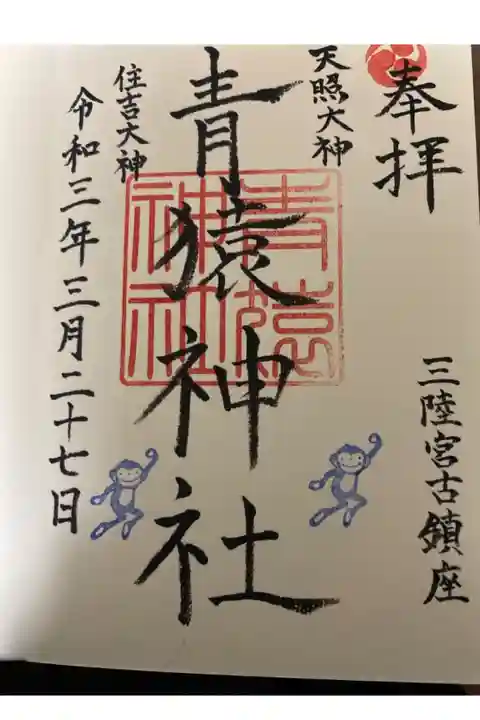 奉拝
三陸宮古鎮座
天照大神
青猿神社
青猿
神社
住吉大神
令和三年三月二十七日